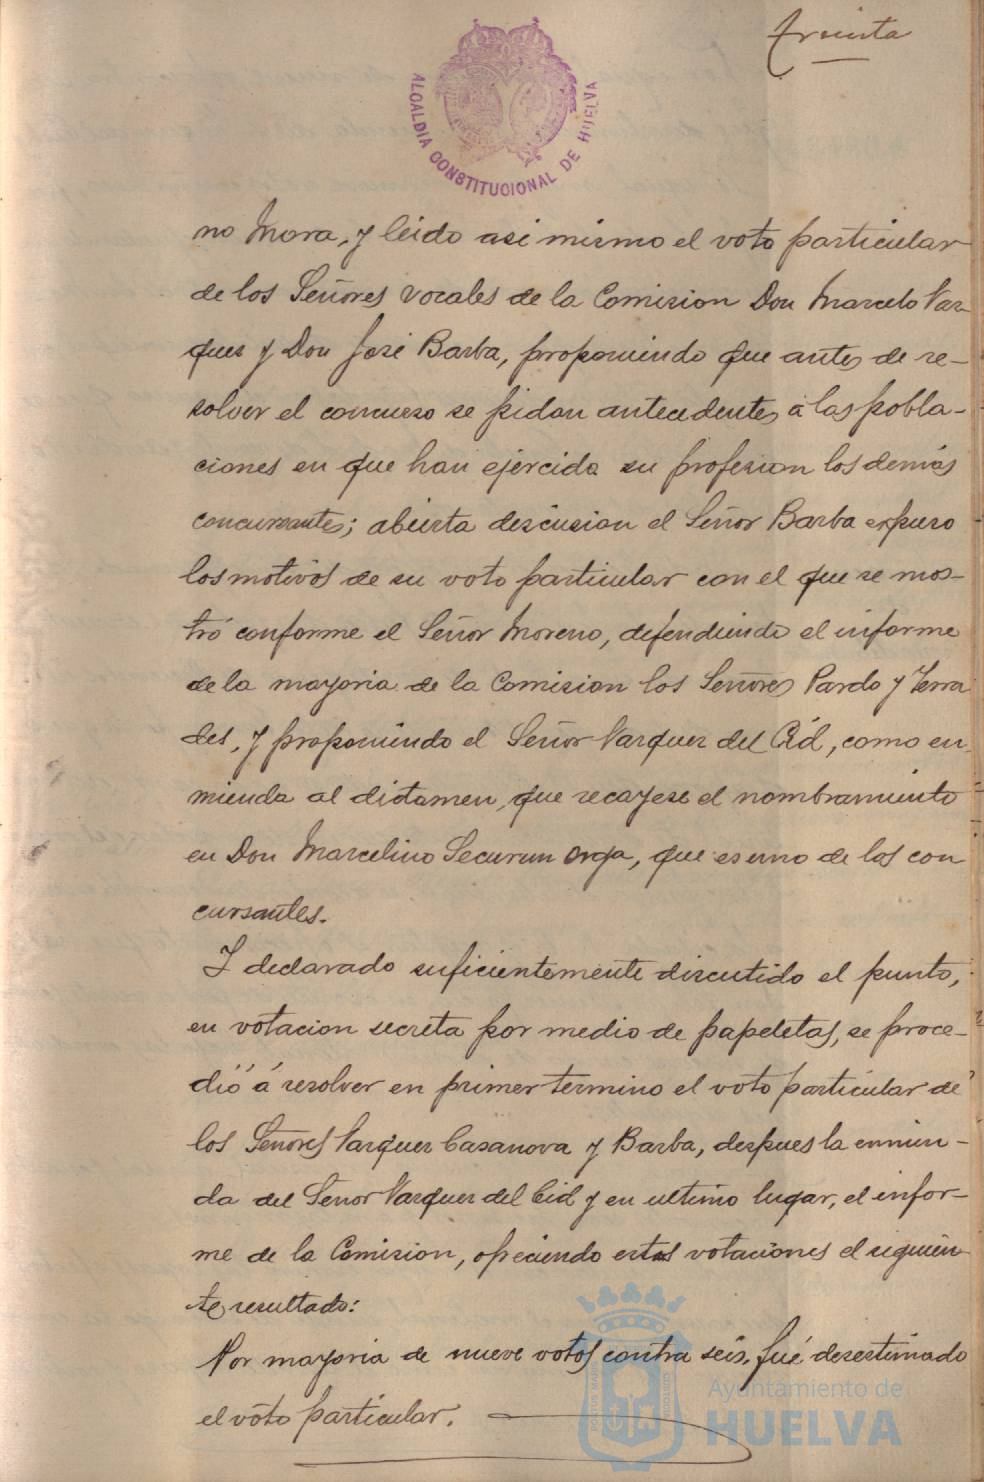 treinta
ALCALDIA CONSTITUCIONAL DE HUELVA
no Mora, y leido asi mismo el voto particular
de los Señores Vocales de la Comision Don Marcelo Vaz-
quez y Don José Barba, proponiendo que antes de re-
solver el concurso se pidan antecedentes á las pobla-
ciones en que han ejercido su profesion los demás
concursantes; abierta descusion el Señor Barba espuso
los motivos de su voto particular con el que se mos-
tró conforme el Señor Moreno, defendiendo el informe
de la mayoria de la Comision los Señores Pardo y Terra
des, y proponiendo el Señor Vazquez del Cid, como en-
mienda al dictamen, que recayese el nombramiento
en Don Marcelino Securun Orga, que es uno de los con
cursantes.
Y declarado suficientemente discutido el punto,
en votacion secreta por medio de papeletas, se proce-
dió á resolver en primer termino el voto particular de
los Señores Vazquez Casanova y Barba, despues la enmien-
da del Señor Vazquez del Cid y en ultimo lugar, el infor-
me de la Comision, ofreciendo estas votaciones el siguien
te resultado:
Por mayoria de nueve votos contra seis, fué desestimado
el voto particular.
Ayuntamiento de
HUELVA